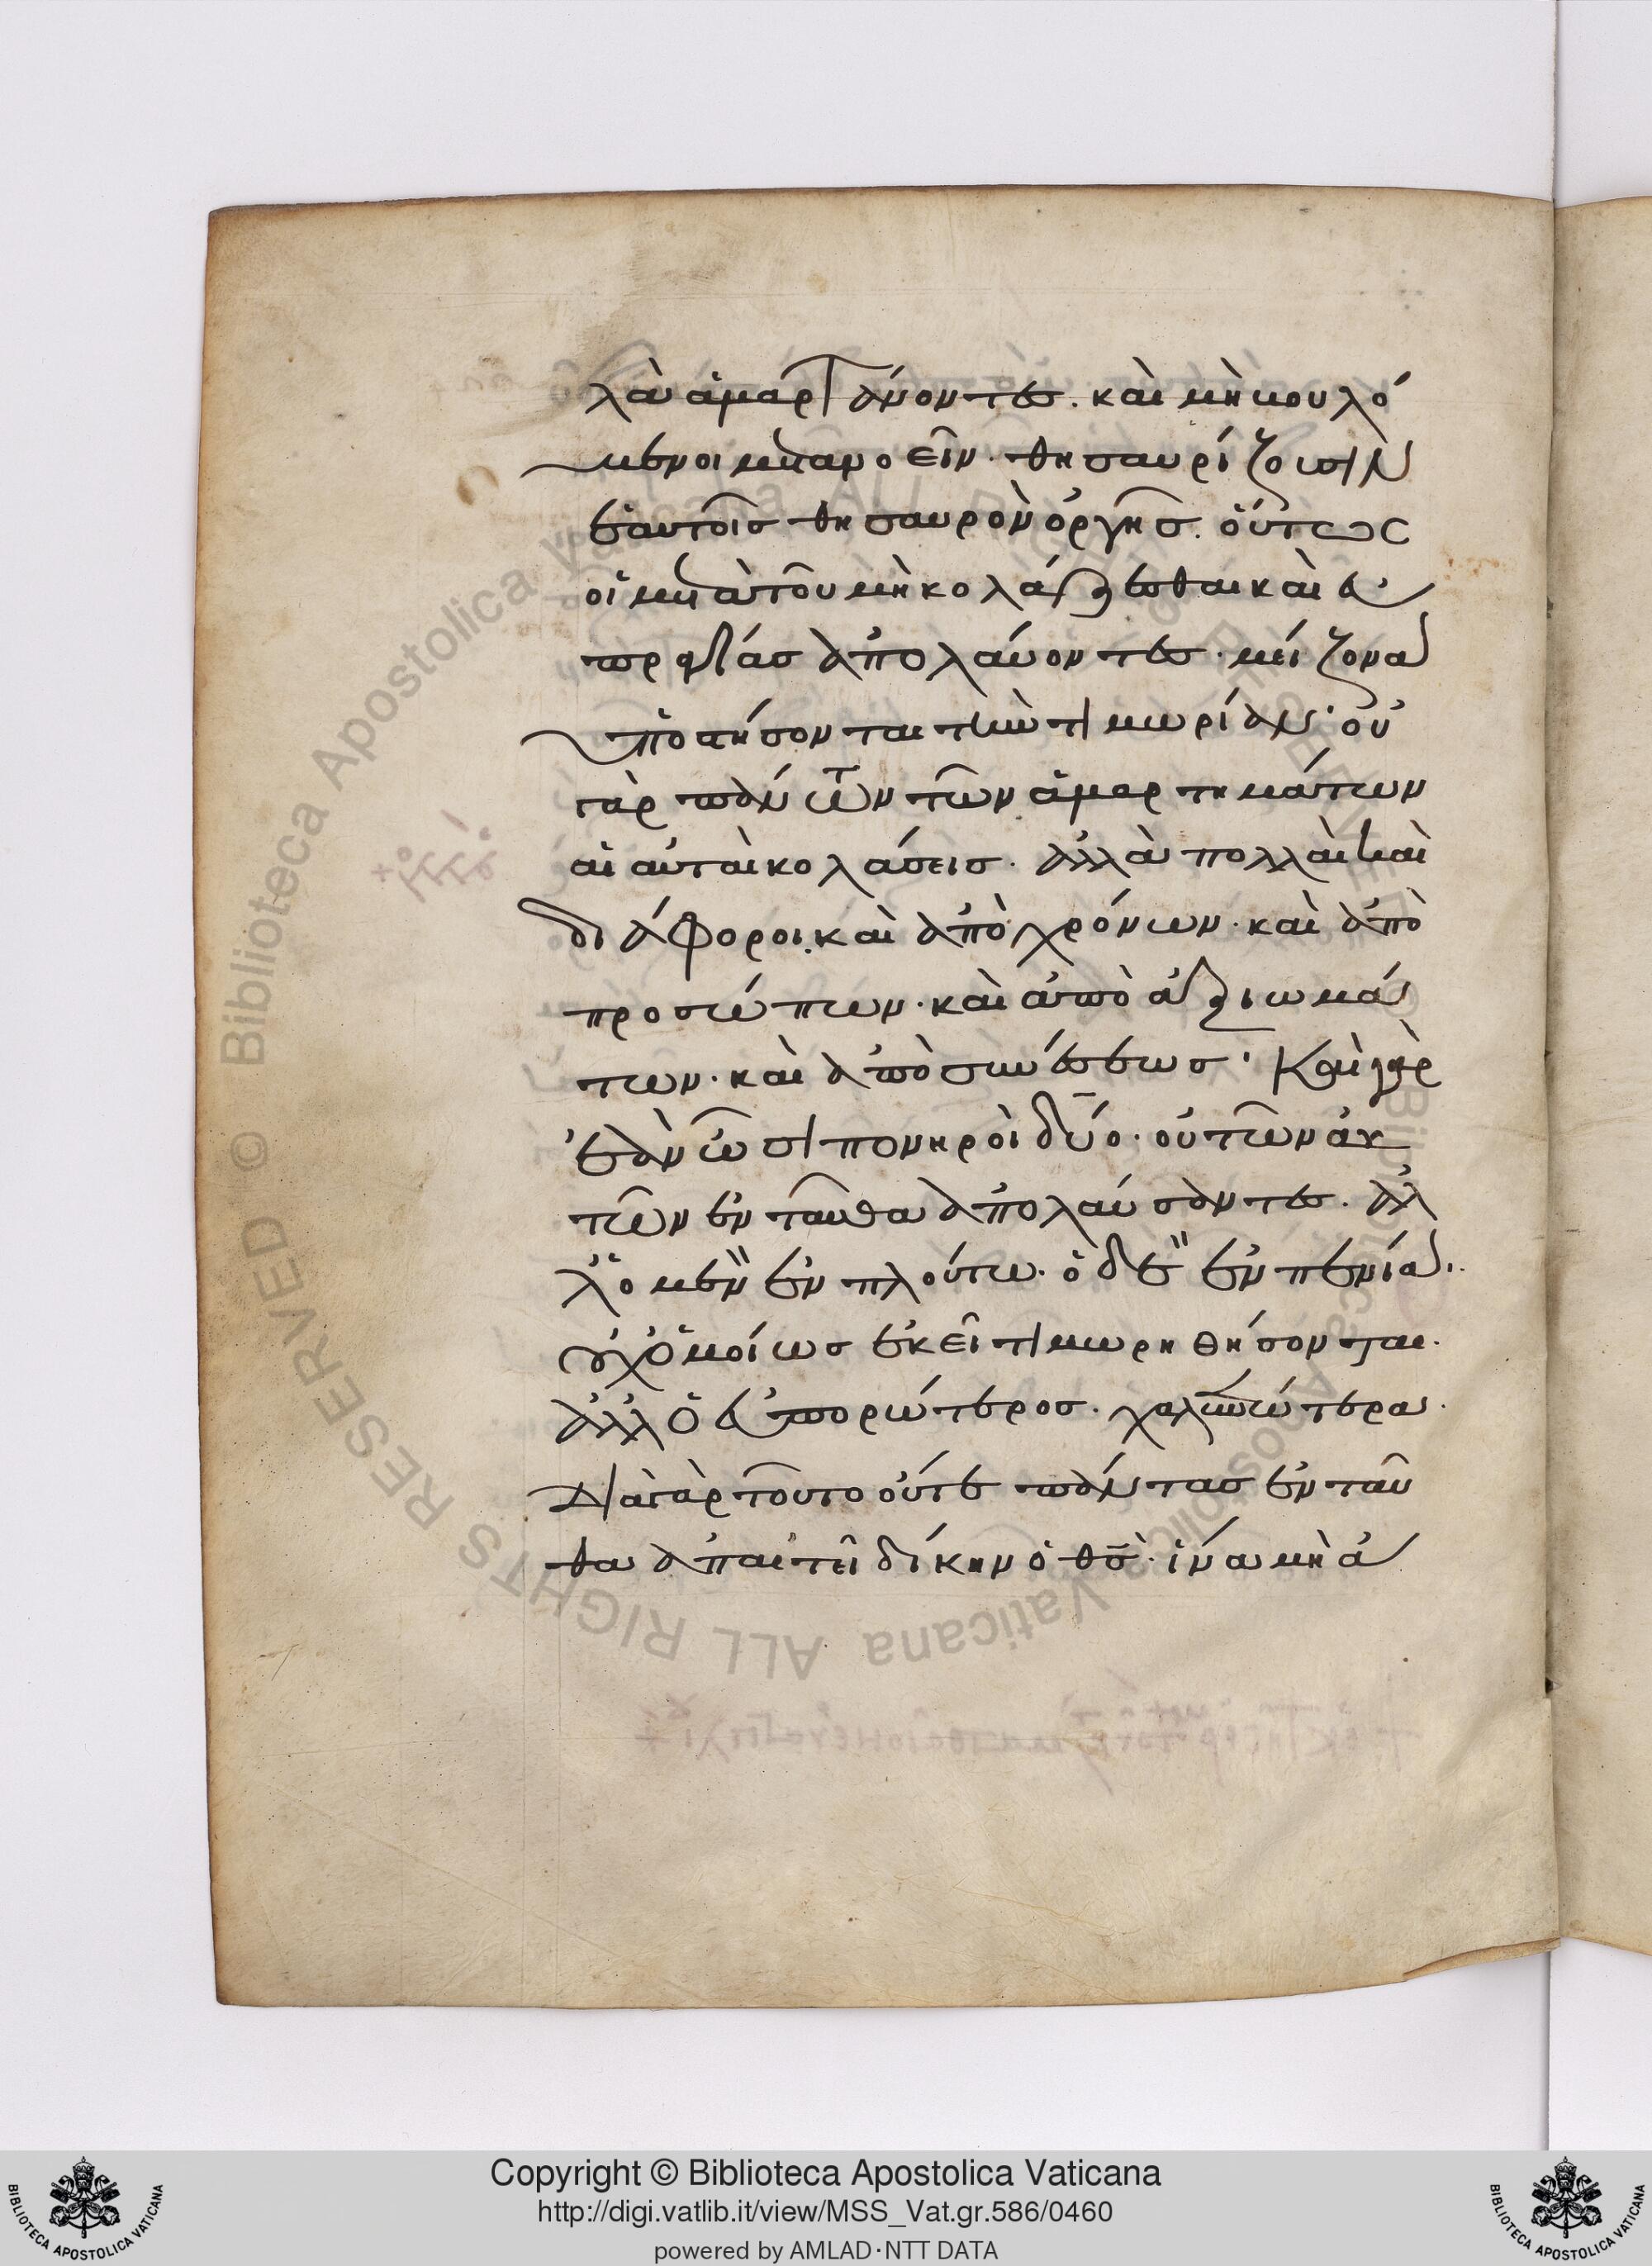 λὰ ἁμαρτάνοντες. καὶ μὴ βουλό
μενοι μετανοεῖν. θησαυρίζουσιν
ἑαυτοῖς θησαυρὸν ὀργῆς. οὕτως
οἱ μετὰ τοῦ μὴ κολάζεσθαι καὶ εὐ
πραγίας ἀπολαύοντες. μείζονα
ὑποστήσονται τὴν τιμωρίαν. οὐ
γὰρ πάντων τῶν ἁμαρτημάτων
αἱ αὐταὶ κολάσεις. ἀλλὰ πολλαὶ καὶ
διάφοροι. καὶ ἀπὸ χρόνων. καὶ ἀπὸ
προσώπων. καὶ ἀπὸ ἀξιωμά
των. καὶ ἀπὸ συνέσεως. Καὶ γὰρ
ἐὰν ὦσι πονηροὶ δύο. οὐ τῶν αὐ
τῶν ἐνταῦθα ἀπολαύσαντες. ἀλ
λ' ὁ μὲν ἐν πλούτω. ὁ δὲ ἐν πενία.
οὐχ ὁμοίως ἐκεῖ τιμωρηθήσονται.
ἀλλ' ὁ εὐπορώτερος. χαλεπώτερα.
Διὰ γὰρ τοῦτο οὔτε πάντας ἐνταῦ
θα ἀπαιτεῖ δίκην ὁ θς. ἵνα μὴ ἀ
Copyright © Biblioteca Apostolica Vaticana
http://digi.vatlib.it/view/MSS_Vat.gr.586/0460
powered by AMLAD·NTT DATA
BIBLIOTECA APOSTOLICA VATICANA
BIBLIOTECA APOSTOLICA VATICANA
© Biblioteca Apostolica Vaticana ALL RIGHTS RESERVED
© Biblioteca Apostolica Vaticana ALL RIGHTS RESERVED